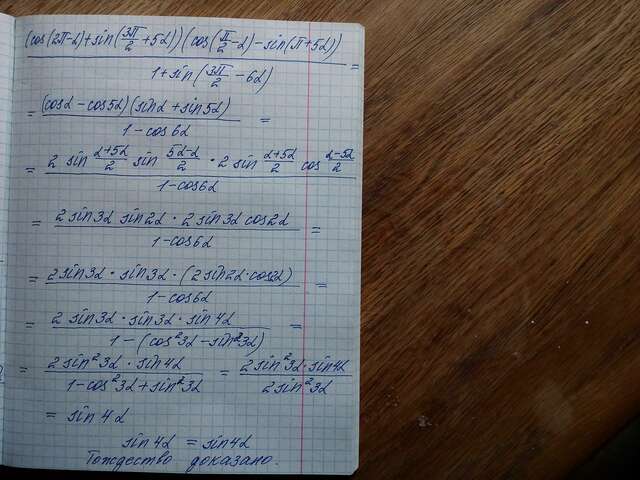 (cos(2π-α)+sin(3π/2+5α))(cos(π/2-α)-sin(π+5α))/1+sin(3π/2-6α) =
= (cosα-cos5α)(sinα+sin5α)/1-cos6α =
= 2 sin α+5α/2 sin 5α-α/2 · 2 sin α+5α/2 cos α-5α/2/1-cos6α
= 2 sin3α sin2α · 2 sin3α cos2α/1-cos6α =
= 2sin3α · sin3α · (2sin2α·cos2α)/1-cos6α =
= 2 sin3α · sin3α · sin4α/1-(cos²3α-sin²3α) =
= 2sin²3α · sin4α/1-cos²3α+sin²3α = 2sin²3α·sin4α/2sin²3α
= sin4α
sin4α = sin4α
Тождество доказано.